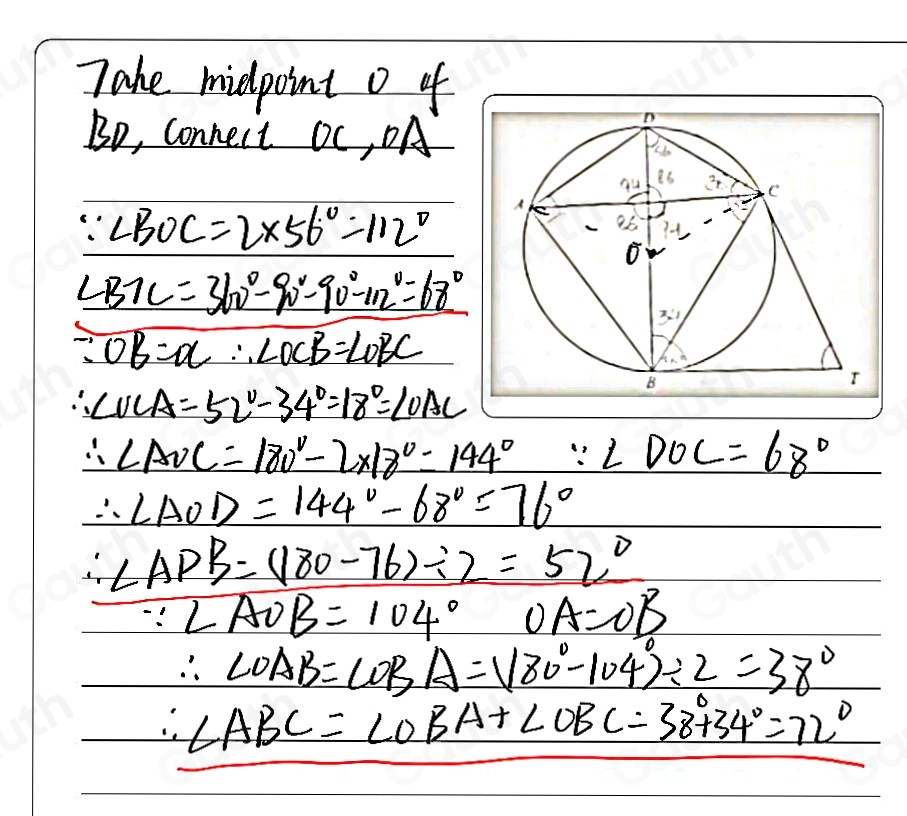 Take midpoint O of
BD, connect OC, OA
∵∠BOC=2×56°=112°
∠BTC=360°-90°-90°-112°=68°
∵OB=OC ∴∠OCB=∠OBC
∴∠OCA=52°-34°=18°=∠OAC
∴∠AOC=180°-2×18°=144° ∵∠DOC=68°
∴∠AOD=144°-68°=76°
∴∠ADB=(180-76)÷2=52°
∵∠AOB=104° OA=OB
∴∠OAB=∠OBA=(180°-104°)÷2=38°
∴∠ABC=∠OBA+∠OBC=38°+34°=72°
D
94 86
A
C
86
O
34
B
T
Gauth